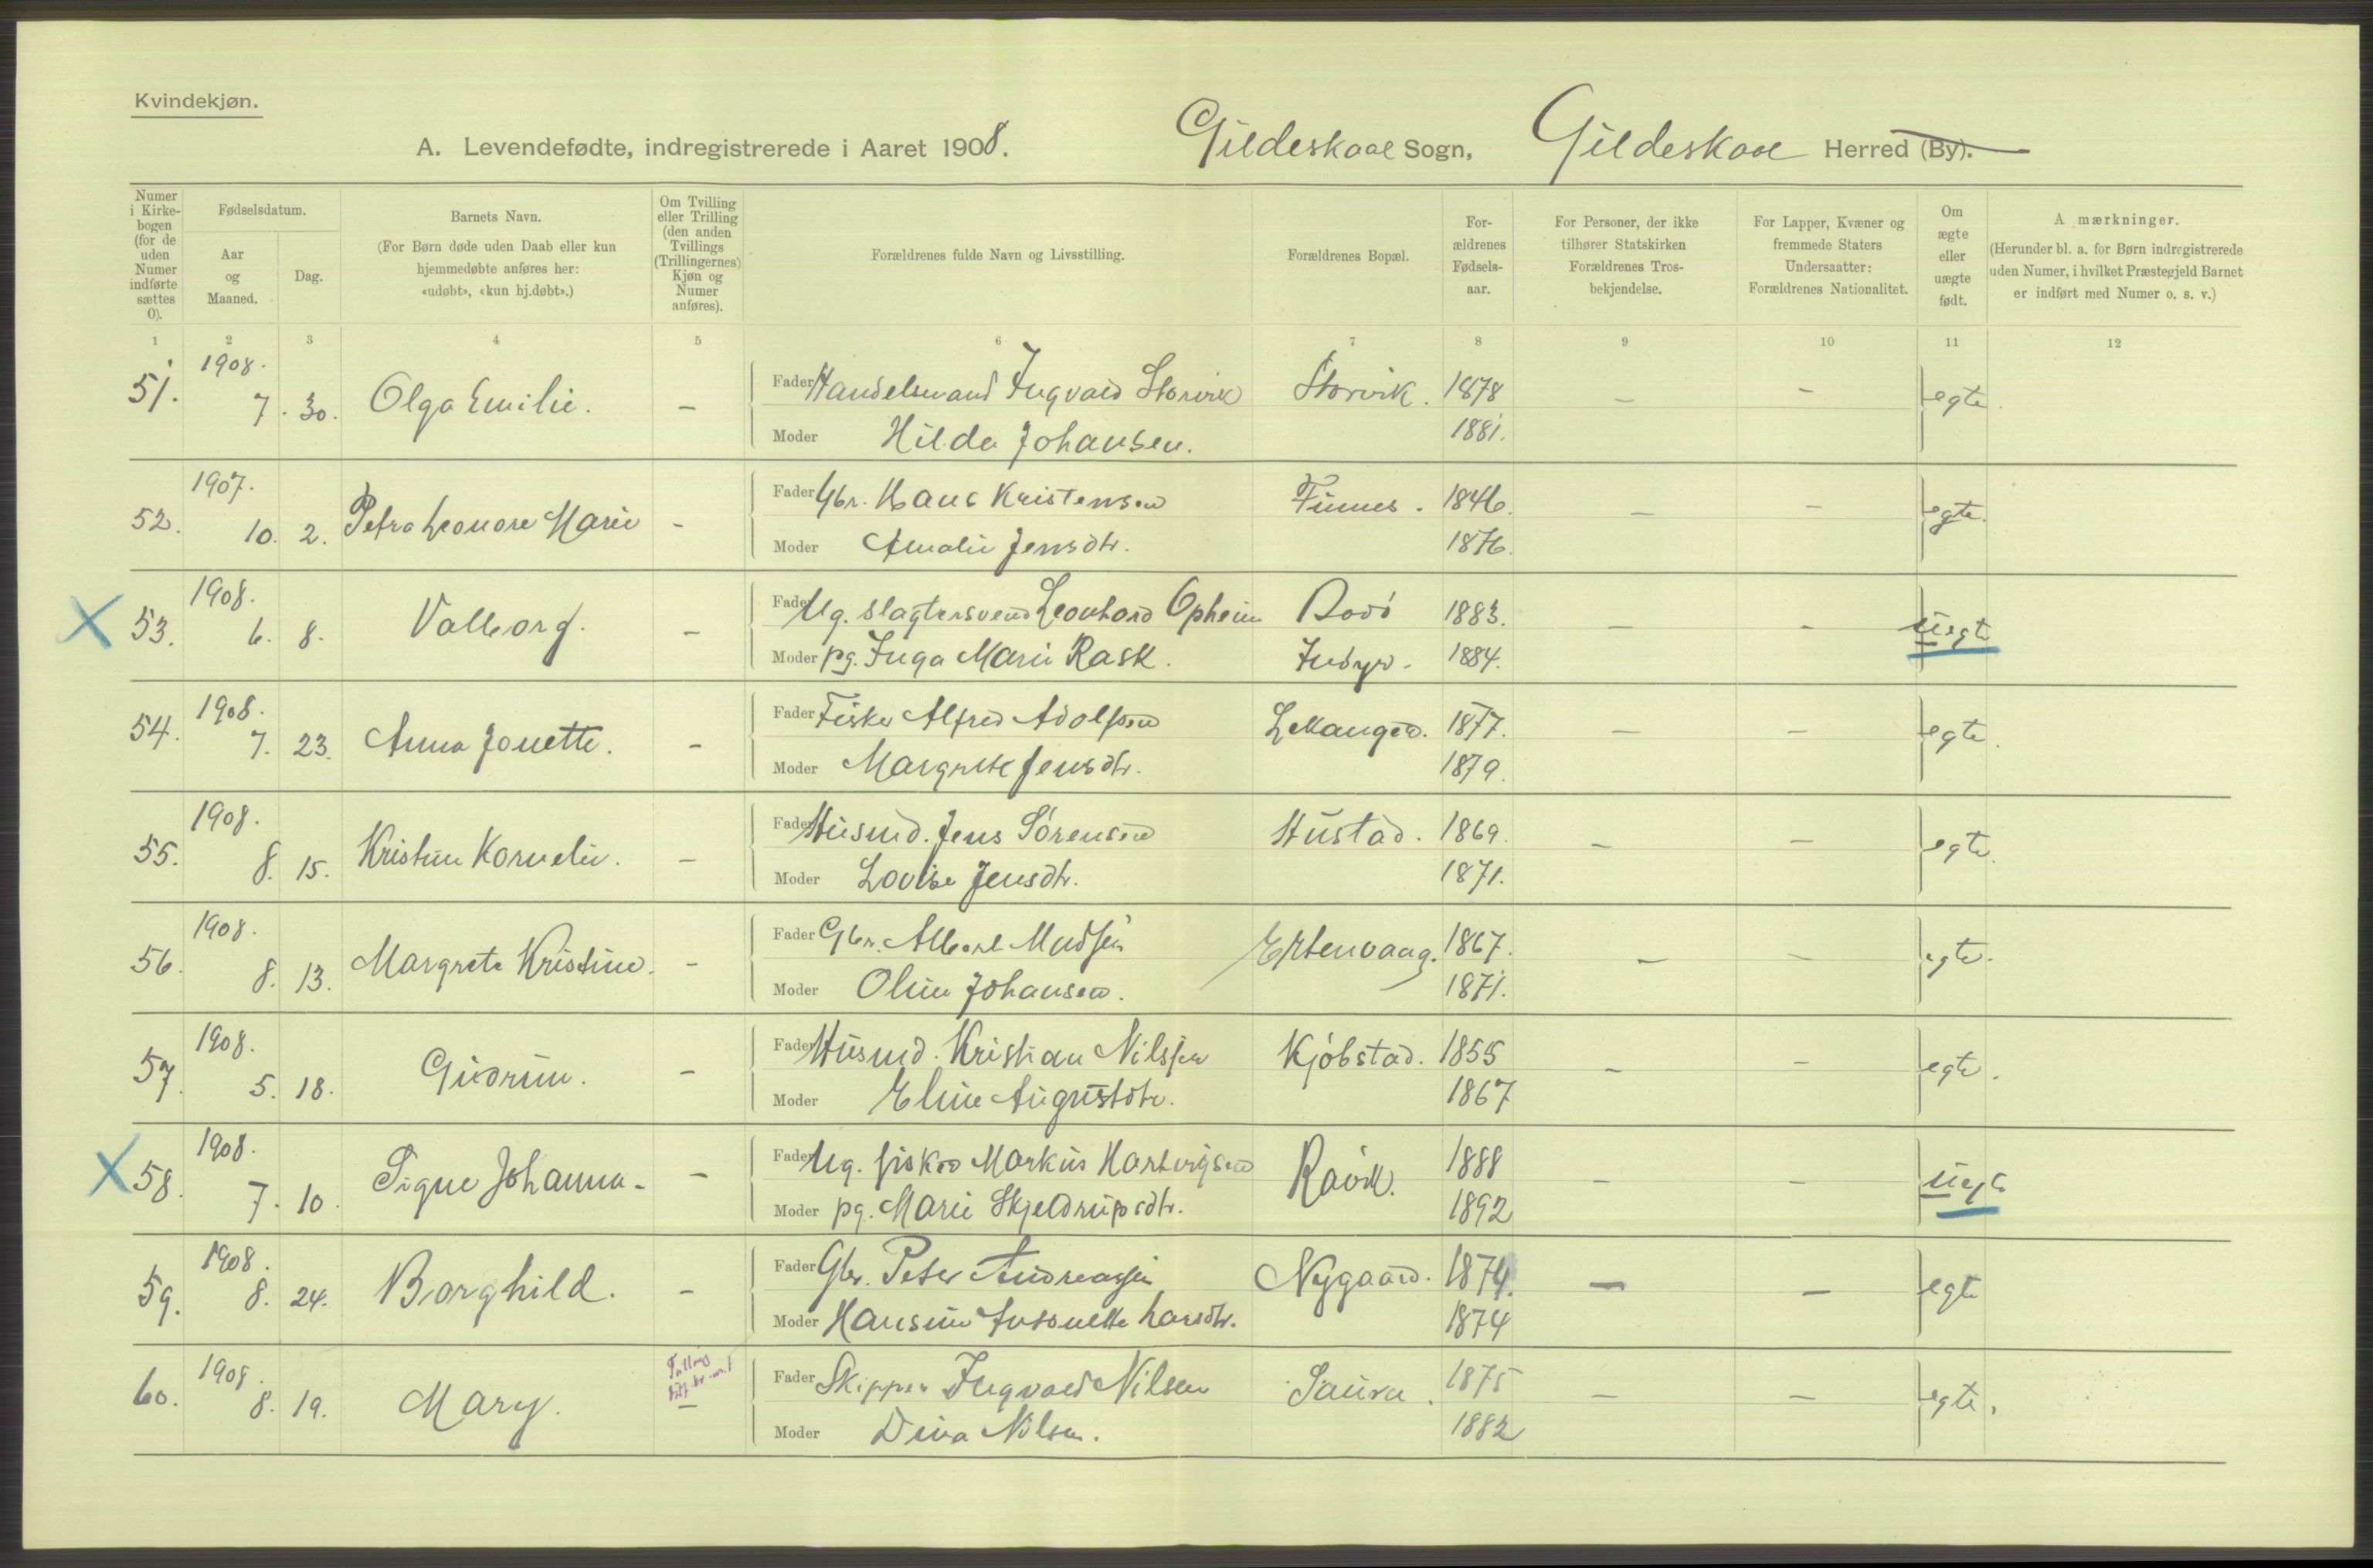 Kvindekjøn.
A. Levendefødte, indregistrerede i Aaret 1908. Gildeskaal Sogn, Gildeskaal Herred (By).
Numer i Kirkebogen (for de uden Numer indførte sættes 0).
Fødselsdatum.
Aar og Maaned.
Dag.
Barnets Navn.
(For Børn døde uden Daab eller kun hjemmedøbte anføres her: «udøbt», «kun hj.døbt».)
Om Tvilling eller Trilling (den anden Tvillings (Trillingernes) Kjøn og Numer anføres).
Forældrenes fulde Navn og Livsstilling.
Forældrenes Bopæl.
Forældrenes Fødselsaar.
For Personer, der ikke tilhører Statskirken Forældrenes Trosbekjendelse.
For Lapper, Kvæner og fremmede Staters Undersaatter: Forældrenes Nationalitet.
Om ægte eller uægte født.
A mærkninger.
(Herunder bl. a. for Børn indregistrerede uden Numer, i hvilket Præstegjeld Barnet er indført med Numer o. s. v.)
1 2 3 4 5 6 7 8 9 10 11 12
51. 1908. 7. 30. Olga Emilie. — Fader Handelsmand Ingvald Storvik Storvik. 1878 — — egte
Moder Hilda Johansen. 1881.
52. 1907. 10. 2. Petra Leonore Marie - Fader Gbr. Hans Kristensen Finnes. 1846. — - egte.
Moder Amalie Jensdtr. 1876.
X 53. 1908. 6. 8. Valborg. — Fader Ug. slagtersvend Leonhard Opheim Bodö 1883. — - uegte
Moder pg. Inga Marie Rask. Indyr. 1884.
54. 1908. 7. 23. Anna Jonette. - Fader Fisker Alfred Adolfsen Lekanger. 1877. — — egte.
Moder Margrete Jensdtr. 1879.
55. 1908. 8. 15. Kristine Kornelie. - Fader Husmd. Jens Sörensen Hustad. 1869. — — egte.
Moder Lovise Jensdtr. 1871.
56. 1908. 8. 13. Margrete Kristine. - Fader Gbr. Albert Madsen Ertenvaag. 1867. — — egte.
Moder Oline Johansen. 1871.
57. 1908. 5. 18. Gudrun. - Fader Husmd. Kristian Nilssen Kjöbstad. 1855 — — egte.
Moder Eline Augustdtr. 1867
X 58. 1908. 7. 10. Signe Johanna. - Fader Ug. fisker Markus Hartvigsen Ravik. 1888 — — uegte
Moder pg. Marie Skjeldrupsdtr. 1892
59. 1908. 8. 24. Borghild. - Fader Gbr. Peter Andreassen Nygaard. 1874. — — egte
Moder Hansine Antonette Larsdtr. 1874
60. 1908. 8. 19. Mary. — Fader Skipper Ingvald Nilsen Saura. 1875 — — egte.
Moder Dina Nilsen. 1882